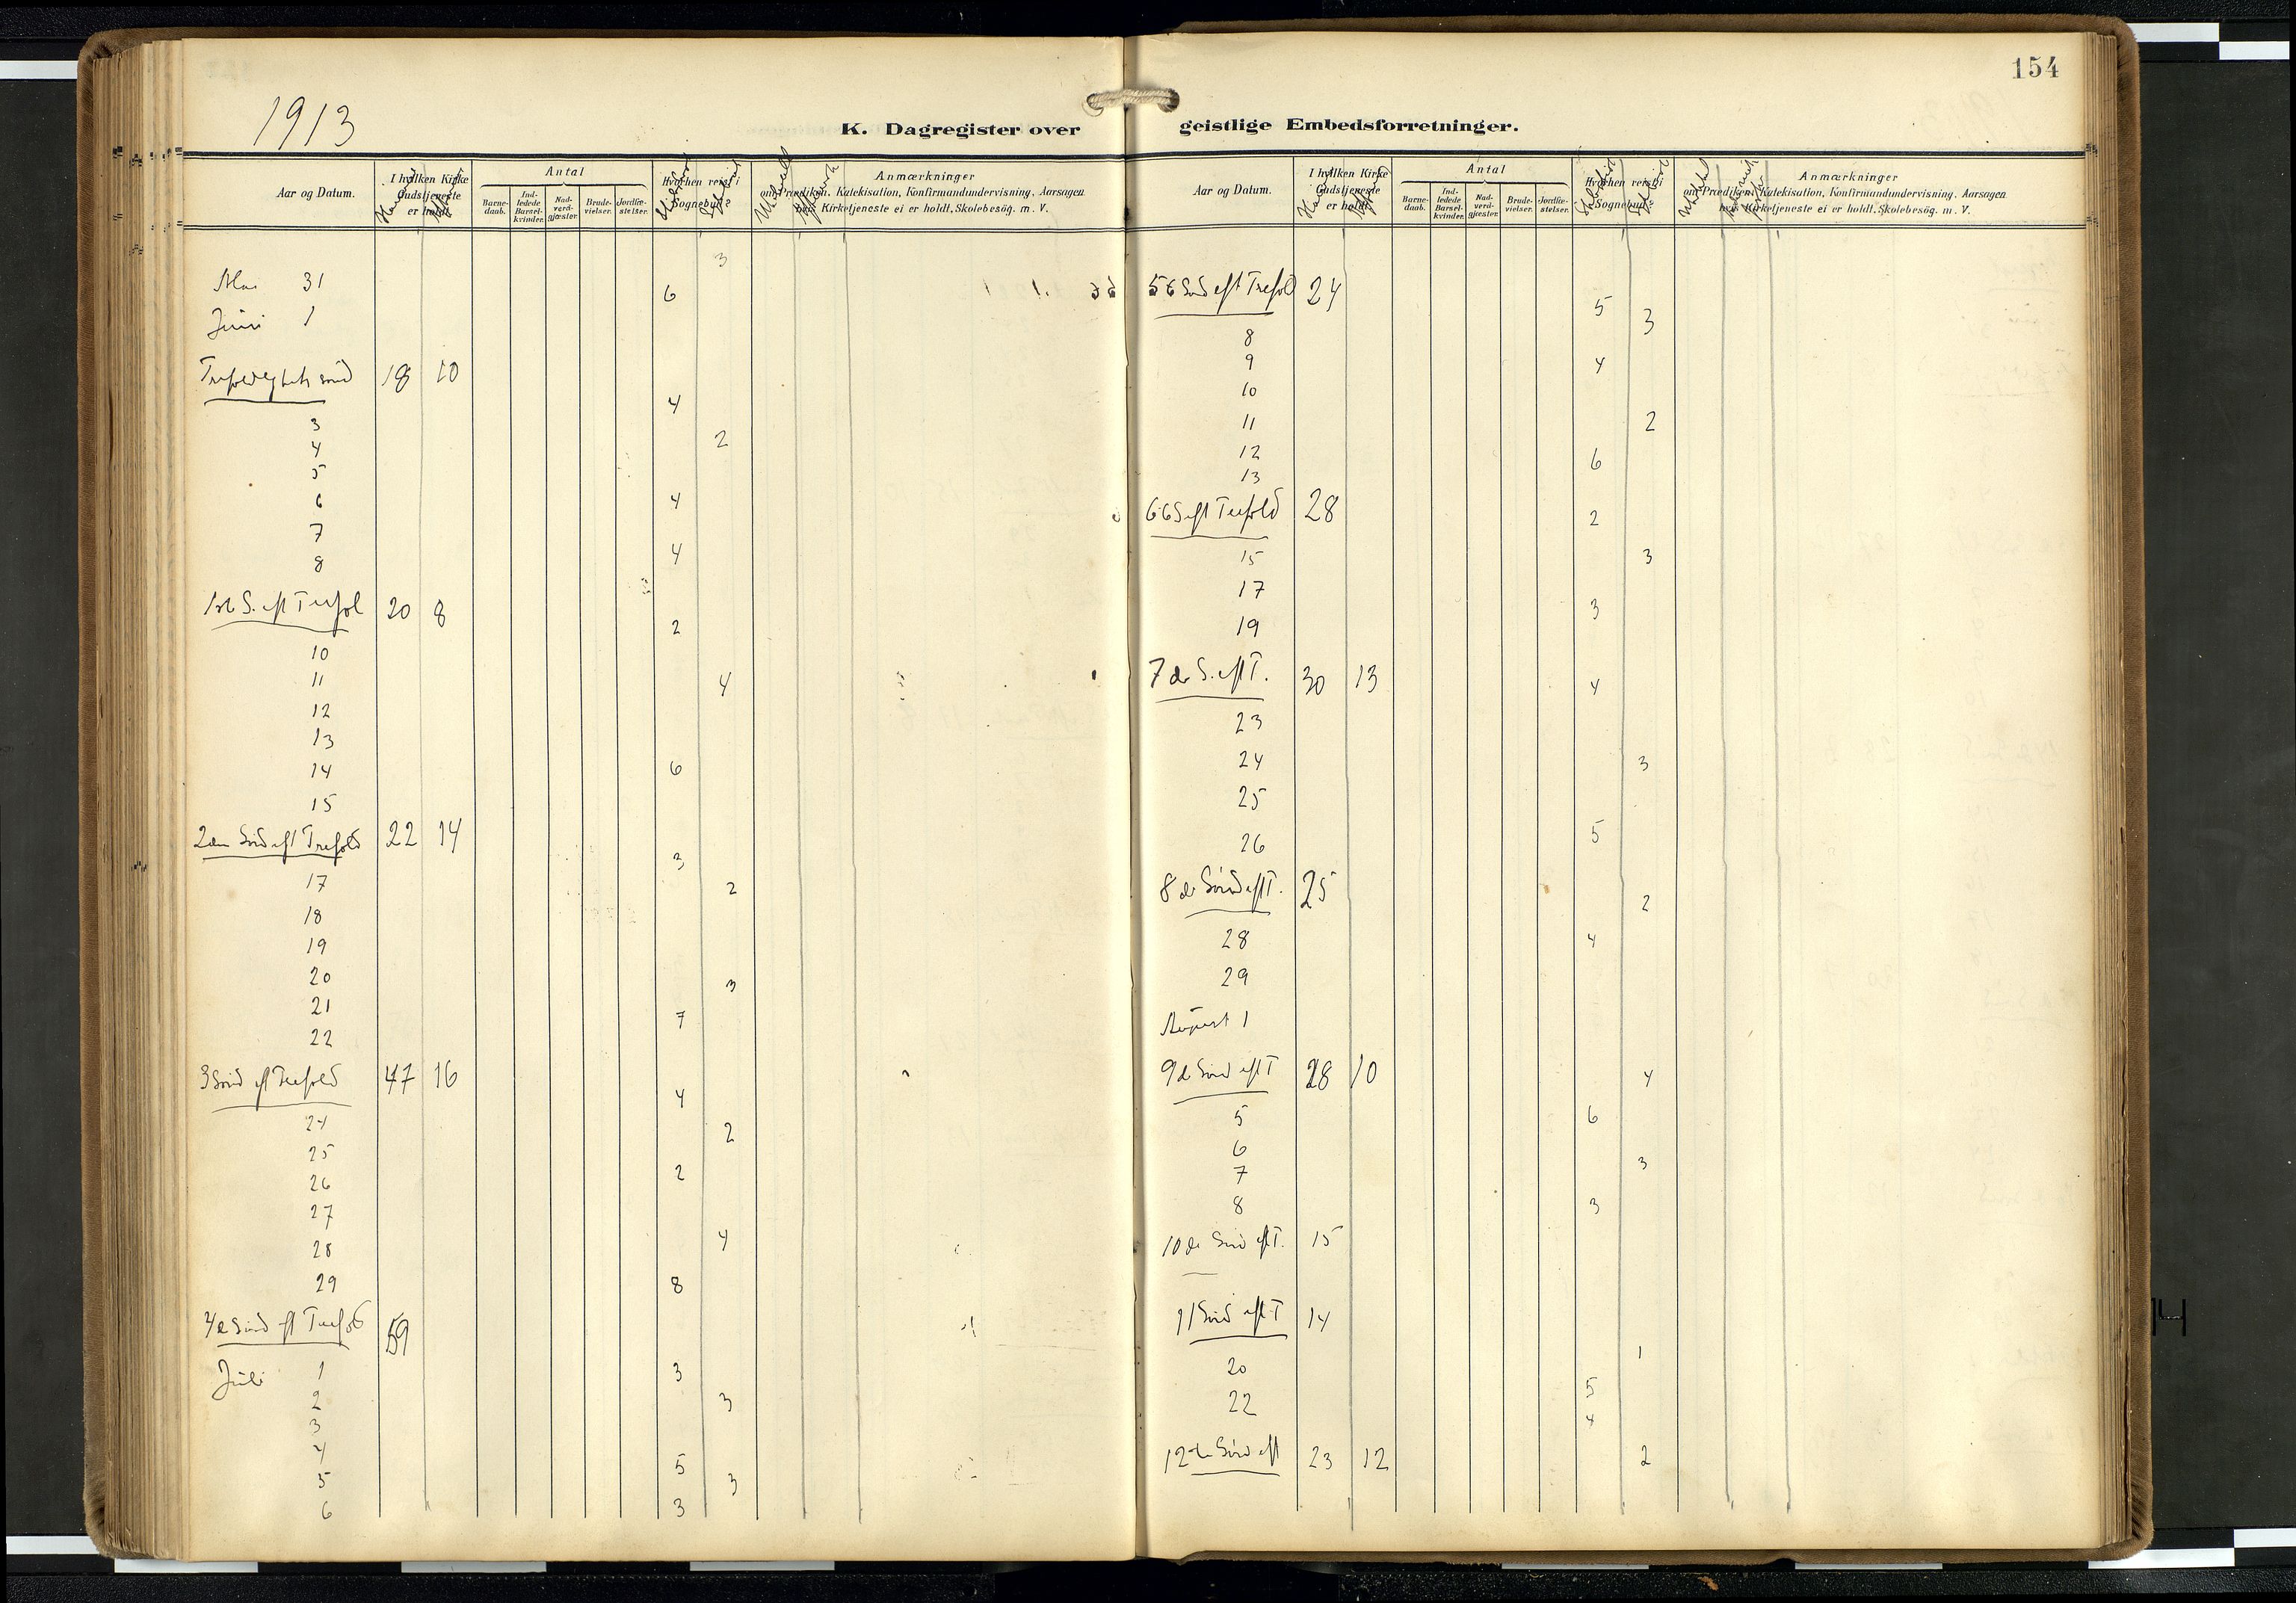 154
1913
K. Dagregister over geistlige Embedsforretninger.
Aar og Datum.
I hvilken Kirke Gudstjeneste er holdt.
Antal
Barne-daab.
Ind-ledede Barsel-kvinder.
Nad-verd-gjæster.
Brude-vielser.
Jordfæ-stelser.
Hvorhen reist i Sognebud?
Anmærkninger
om Prædiken, Katekisation, Konfirmandundervisning. Aarsagen
hvis Kirketjeneste ei er holdt. Skolebesög. m. V.
3
Mai 31
6
Juni 1
Trefoldighets sönd 18 10
4
3
4 2
5
6 4
7
8 4
1st S. eft Trefol 20 8
2
10
11 4
12
13
14 6
15
2den Sönd eft Trefold 22 14
3
17 2
18
19
20 3
21 7
22
3 Sönd eft Trefold 47 16
4
24 2
25
26 2
27
28 4
29 8
4de Sönd eft Trefold 59
Juli 1 3
2 3
3
4
5 5 3
6 3
Aar og Datum.
I hvilken Kirke Gudstjeneste er holdt.
Antal
Barne-daab.
Ind-ledede Barsel-kvinder.
Nad-verd-gjæster.
Brude-vielser.
Jordfæ-stelser.
Hvorhen reist i Sognebud?
Anmærkninger
om Prædiken, Katekisation, Konfirmandundervisning. Aarsagen
hvis Kirketjeneste ei er holdt. Skolebesög. m. V.
Sönd eft Trefold 24
5 3
8
9 4
10
11 2
12 6
13
S eft Trefold 28 2
15 3
17
19 3
7de S. eft T. 30 13 4
23
24 3
25
26 5
8de Sönd eft T. 25 2
28 4
29
August 1
9de Sönd eft T 28 10 4
5 6
6
7 3
8 3
10de Sönd eft T. 15
11 Sönd eft T 14
20 1
22 5
4
12te Sönd eft 23 12 2